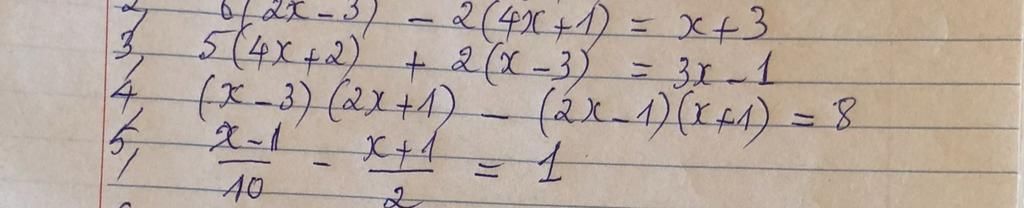 2, 6(2x-3) - 2(4x+1) = x+3
3, 5(4x+2) + 2(x-3) = 3x-1
4, (x-3)(2x+1) - (2x-1)(x+1) = 8
5, \frac{x-1}{10} - \frac{x+1}{2} = 1